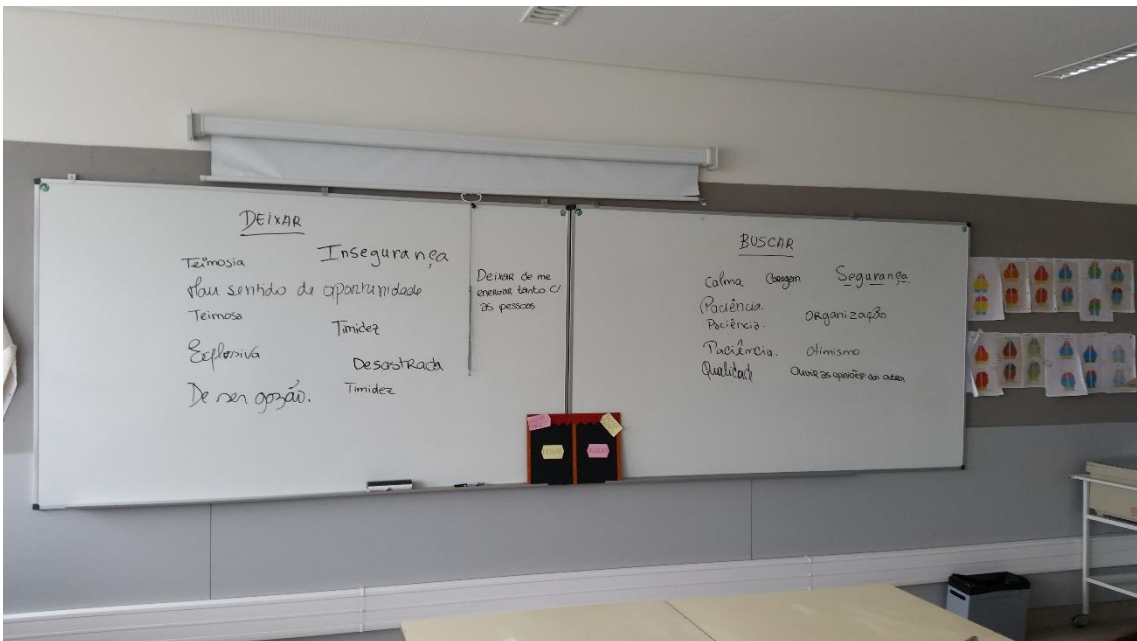 DEIXAR
Teimosia
Insegurança
Mau sentido de oportunidade
Teimosa
Timidez
Explosiva
Desastrada
De ser gozão.
Timidez
Deixar de me
enervar tanto c/
as pessoas
BUSCAR
Calma Coragem Segurança
Paciência.
Paciência.
Organização
Paciência. Otimismo
Qualidade
Ouvir as opiniões dos outros